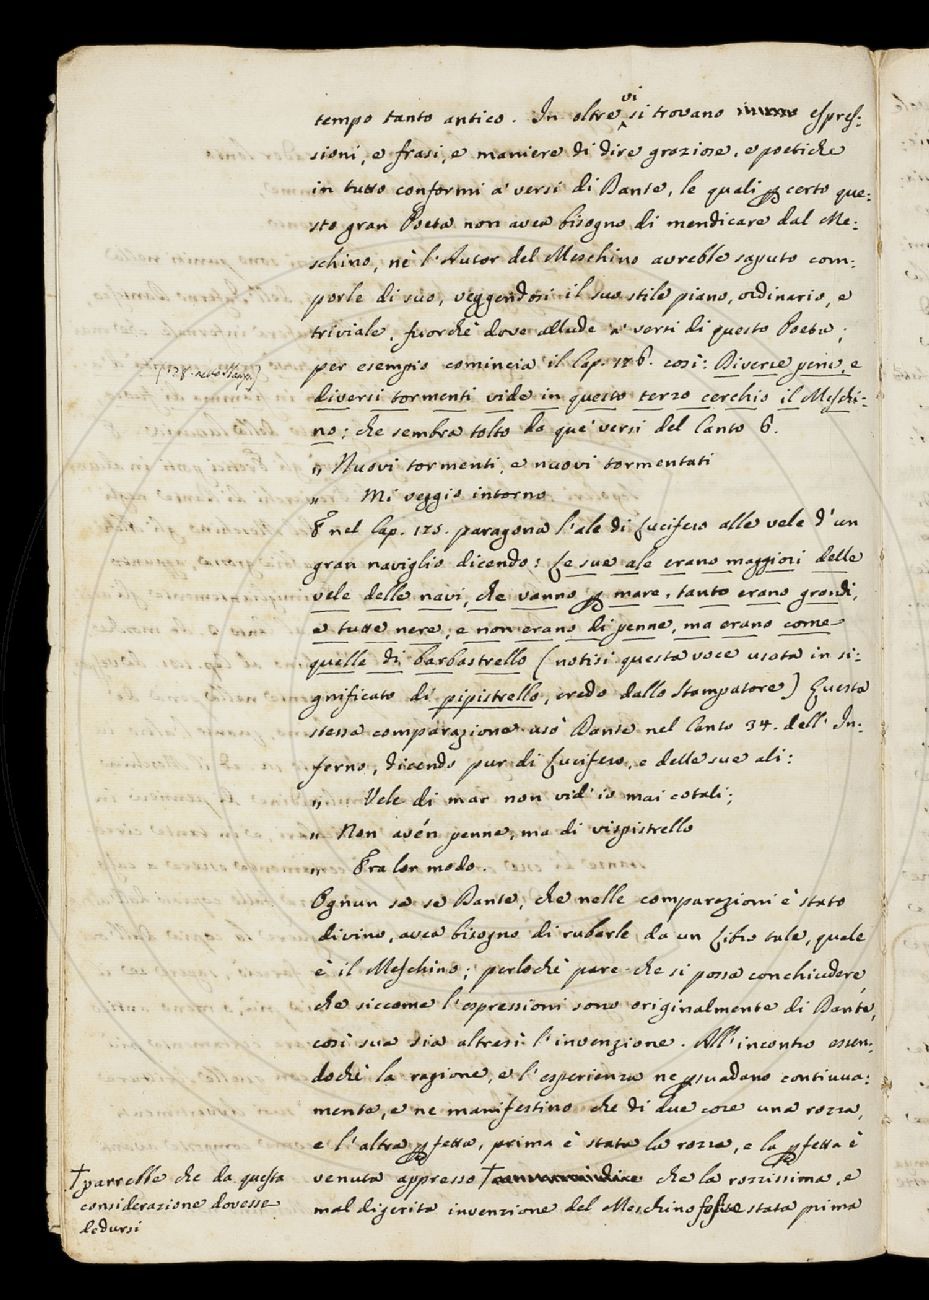 tempo tanto antico. In oltre vi si trovano espres-
sioni, e frasi, e maniere di dire graziose, e poetiche
in tutto conformi a' versi di Dante, le quali p certo que-
sto gran Poeta non avea bisogno di mendicare dal Me-
schino, nè l'Autor del Meschino avrebbe saputo com-
porle di suo, veggendosi il suo stile piano, ordinario, e
triviale, fuorchè dove allude a' versi di questo Poeta;
per esempio comincia il Cap. 176. così: Diverse pene, e
diversi tormenti vide in questo terzo cerchio il Meschi-
no: che sembra tolto da que' versi del Canto 6.
" Nuovi tormenti, e nuovi tormentati
" Mi veggio intorno
E nel Cap. 175. paragona l'ale di Lucifero alle vele d'un
gran naviglio dicendo: Le sue ale erano maggiori delle
vele delle navi, che vanno p mare, tanto erano grandi,
e tutte nere, e non erano di penne, ma erano come
quelle di barbastrello (notisi questa voce usata in si-
gnificato di pipistrello, credo dallo Stampatore) Questa
stessa comparazione usò Dante nel Canto 34. dell'In-
ferno, dicendo pur di Lucifero, e delle sue ali:
" Vele di mar non vid'io mai cotali;
" Non avén penne, ma di vispistrello
" Era lor modo.
Ognun sa se Dante, che nelle comparazioni è stato
divino, avea bisogno di rubarle da un Libro tale, quale
è il Meschino; perlochè pare che si possa conchiudere
che siccome l'espressioni sono originalmente di Dante,
così sua sia altresì l'invenzione. All'incontro essen-
dochè la ragione, e l'esperienza ne psuadano continua-
mente, e ne manifestino che di due cose una rozza,
e l'altra pfetta, prima è stata la rozza, e la pfetta è
venuta appresso † che la rozzissima, e
mal digerita invenzione del Meschino fosse stata prima
† parrebbe che da questa
considerazione dovesse
dedursi